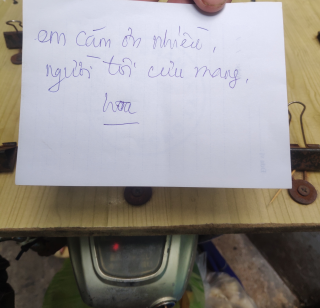 em cảm ơn nhiều,
người tôi cưu mang,
hoa